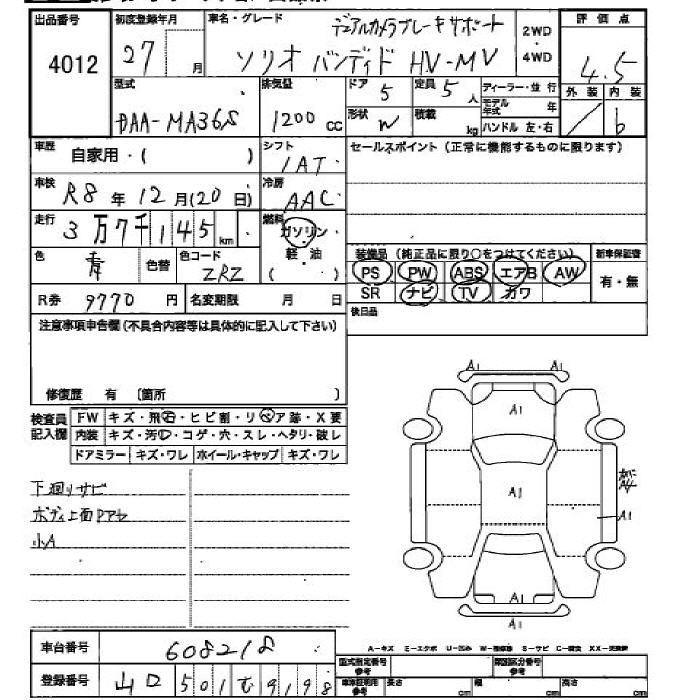 出品番号 4012
初度登録年月 27 月
車名・グレード デュアルカメラブレーキサポート
ソリオ バンディド HV-MV
2WD・4WD
評価点 4.5
外装 内装 b
型式 DAA-MA36S
排気量 1200 cc
ドア 5
定員 5 人
形状 W
積載 kg
ディーラー・並行
モデル年式 年
ハンドル 左・右
車歴 自家用・( )
シフト IAT
セールスポイント(正常に機能するものに限ります)
車検 R8 年 12 月(20 日)
冷房 AAC
走行 3万7千145 km
燃料 ガソリン・軽油 ( )
色 青 色替 色コード ZRZ
装備品(純正品に限り○をつけてください)
PS PW ABS エアB AW
SR ナビ TV カワ
新車保証書 有・無
R券 9770 円 名変期限 月 日
後日品
注意事項申告欄(不具合内容等は具体的に記入して下さい)
修復歴 有 〔箇所 〕
検査員記入欄
FW キズ・飛石・ヒビ割・リペア跡・X要
内装 キズ・汚・コゲ・穴・スレ・ヘタリ・破レ
ドアミラー キズ・ワレ ホイール・キャップ キズ・ワレ
下廻りサビ
ボディ上面Pアセ
小A
A1 A1
A1
A1
A4
A1
A1
A1
A-キズ E-エクボ U-凹み W-補修跡 S-サビ C-腐食 XX-交換済
車台番号 608218
登録番号 山口 501 む 9198
型式指定番号 参考
類別区分番号 参考
車体証明用 参考 長さ cm 幅 cm 高さ cm